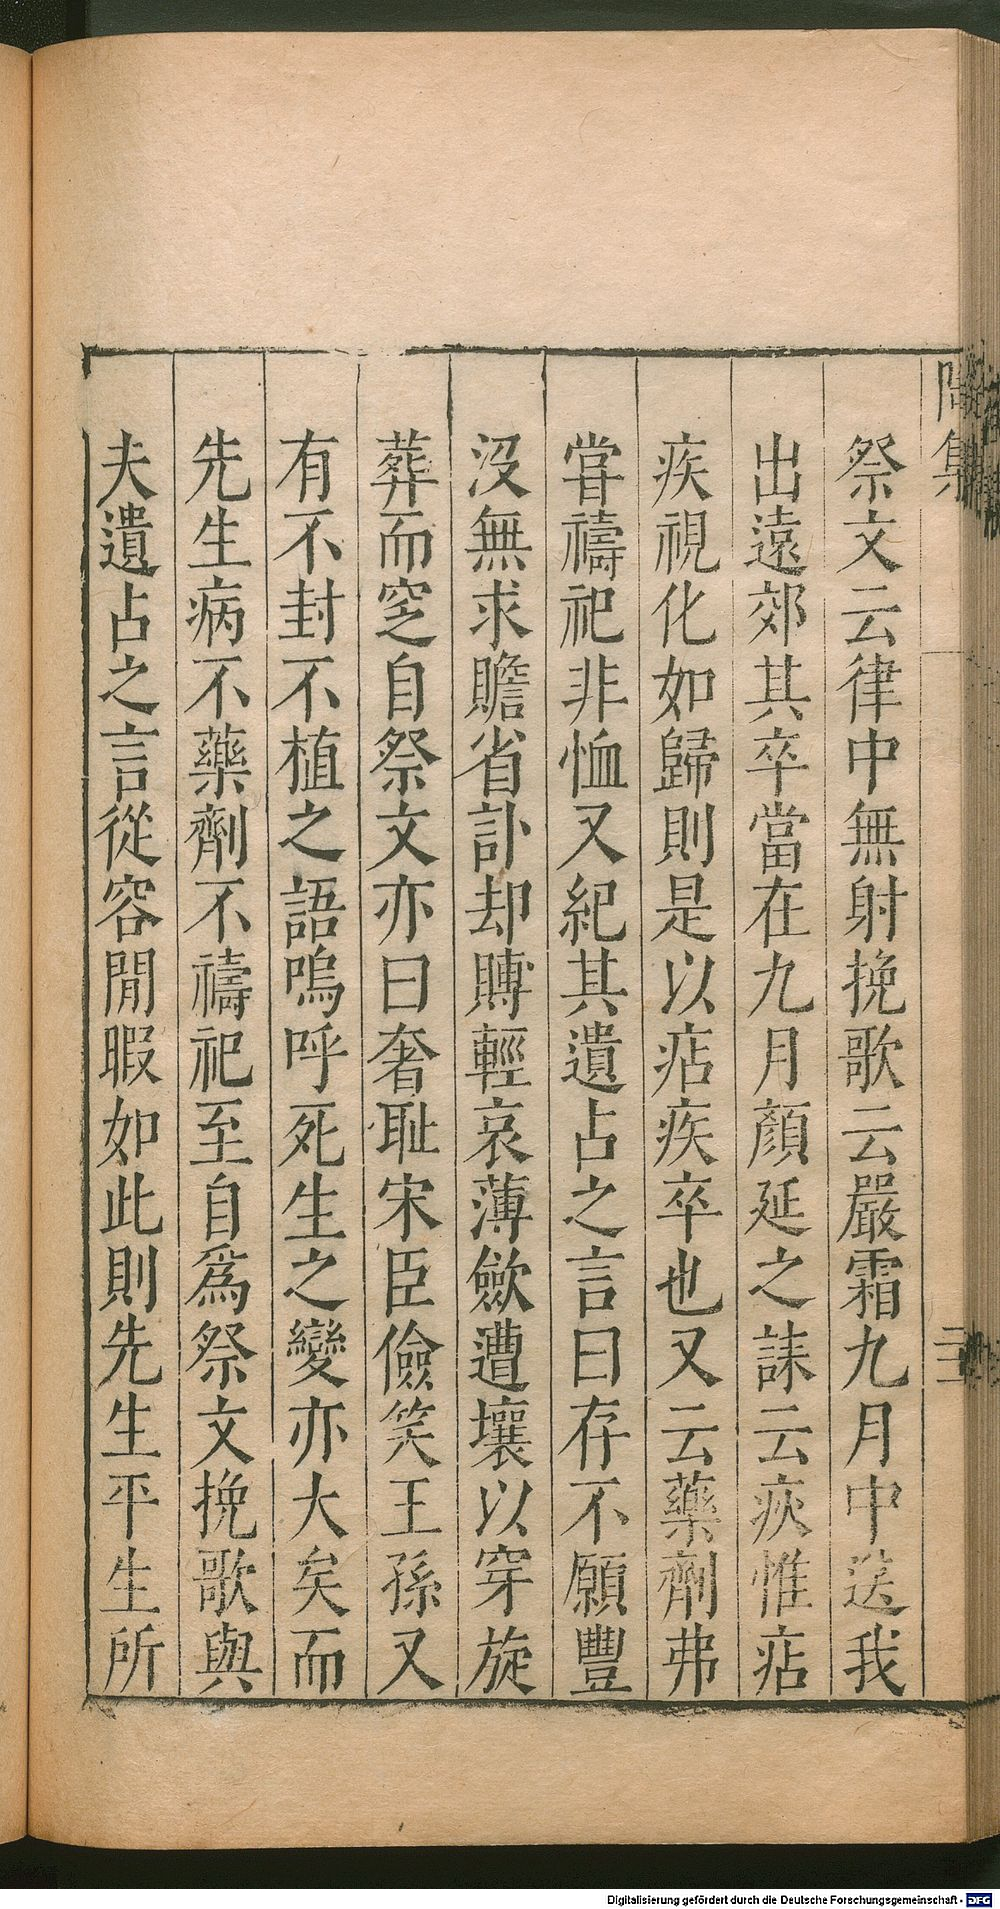 祭文云律中無射挽歌云嚴霜九月中送我
出遠郊其卒當在九月顏延之誄云疢惟痁
疾視化如歸則是以痁疾卒也又云藥劑弗
甞禱祀非恤又紀其遺占之言曰存不願豐
沒無求贍省訃却賻輕哀薄歛遭壤以穿旋
葬而窆自祭文亦曰奢耻宋臣儉笑王孫又
有不封不植之語嗚呼死生之變亦大矣而
先生病不藥劑不禱祀至自爲祭文挽歌與
夫遺占之言從容閒暇如此則先生平生所
Digitalisierung gefördert durch die Deutsche Forschungsgemeinschaft - DFG